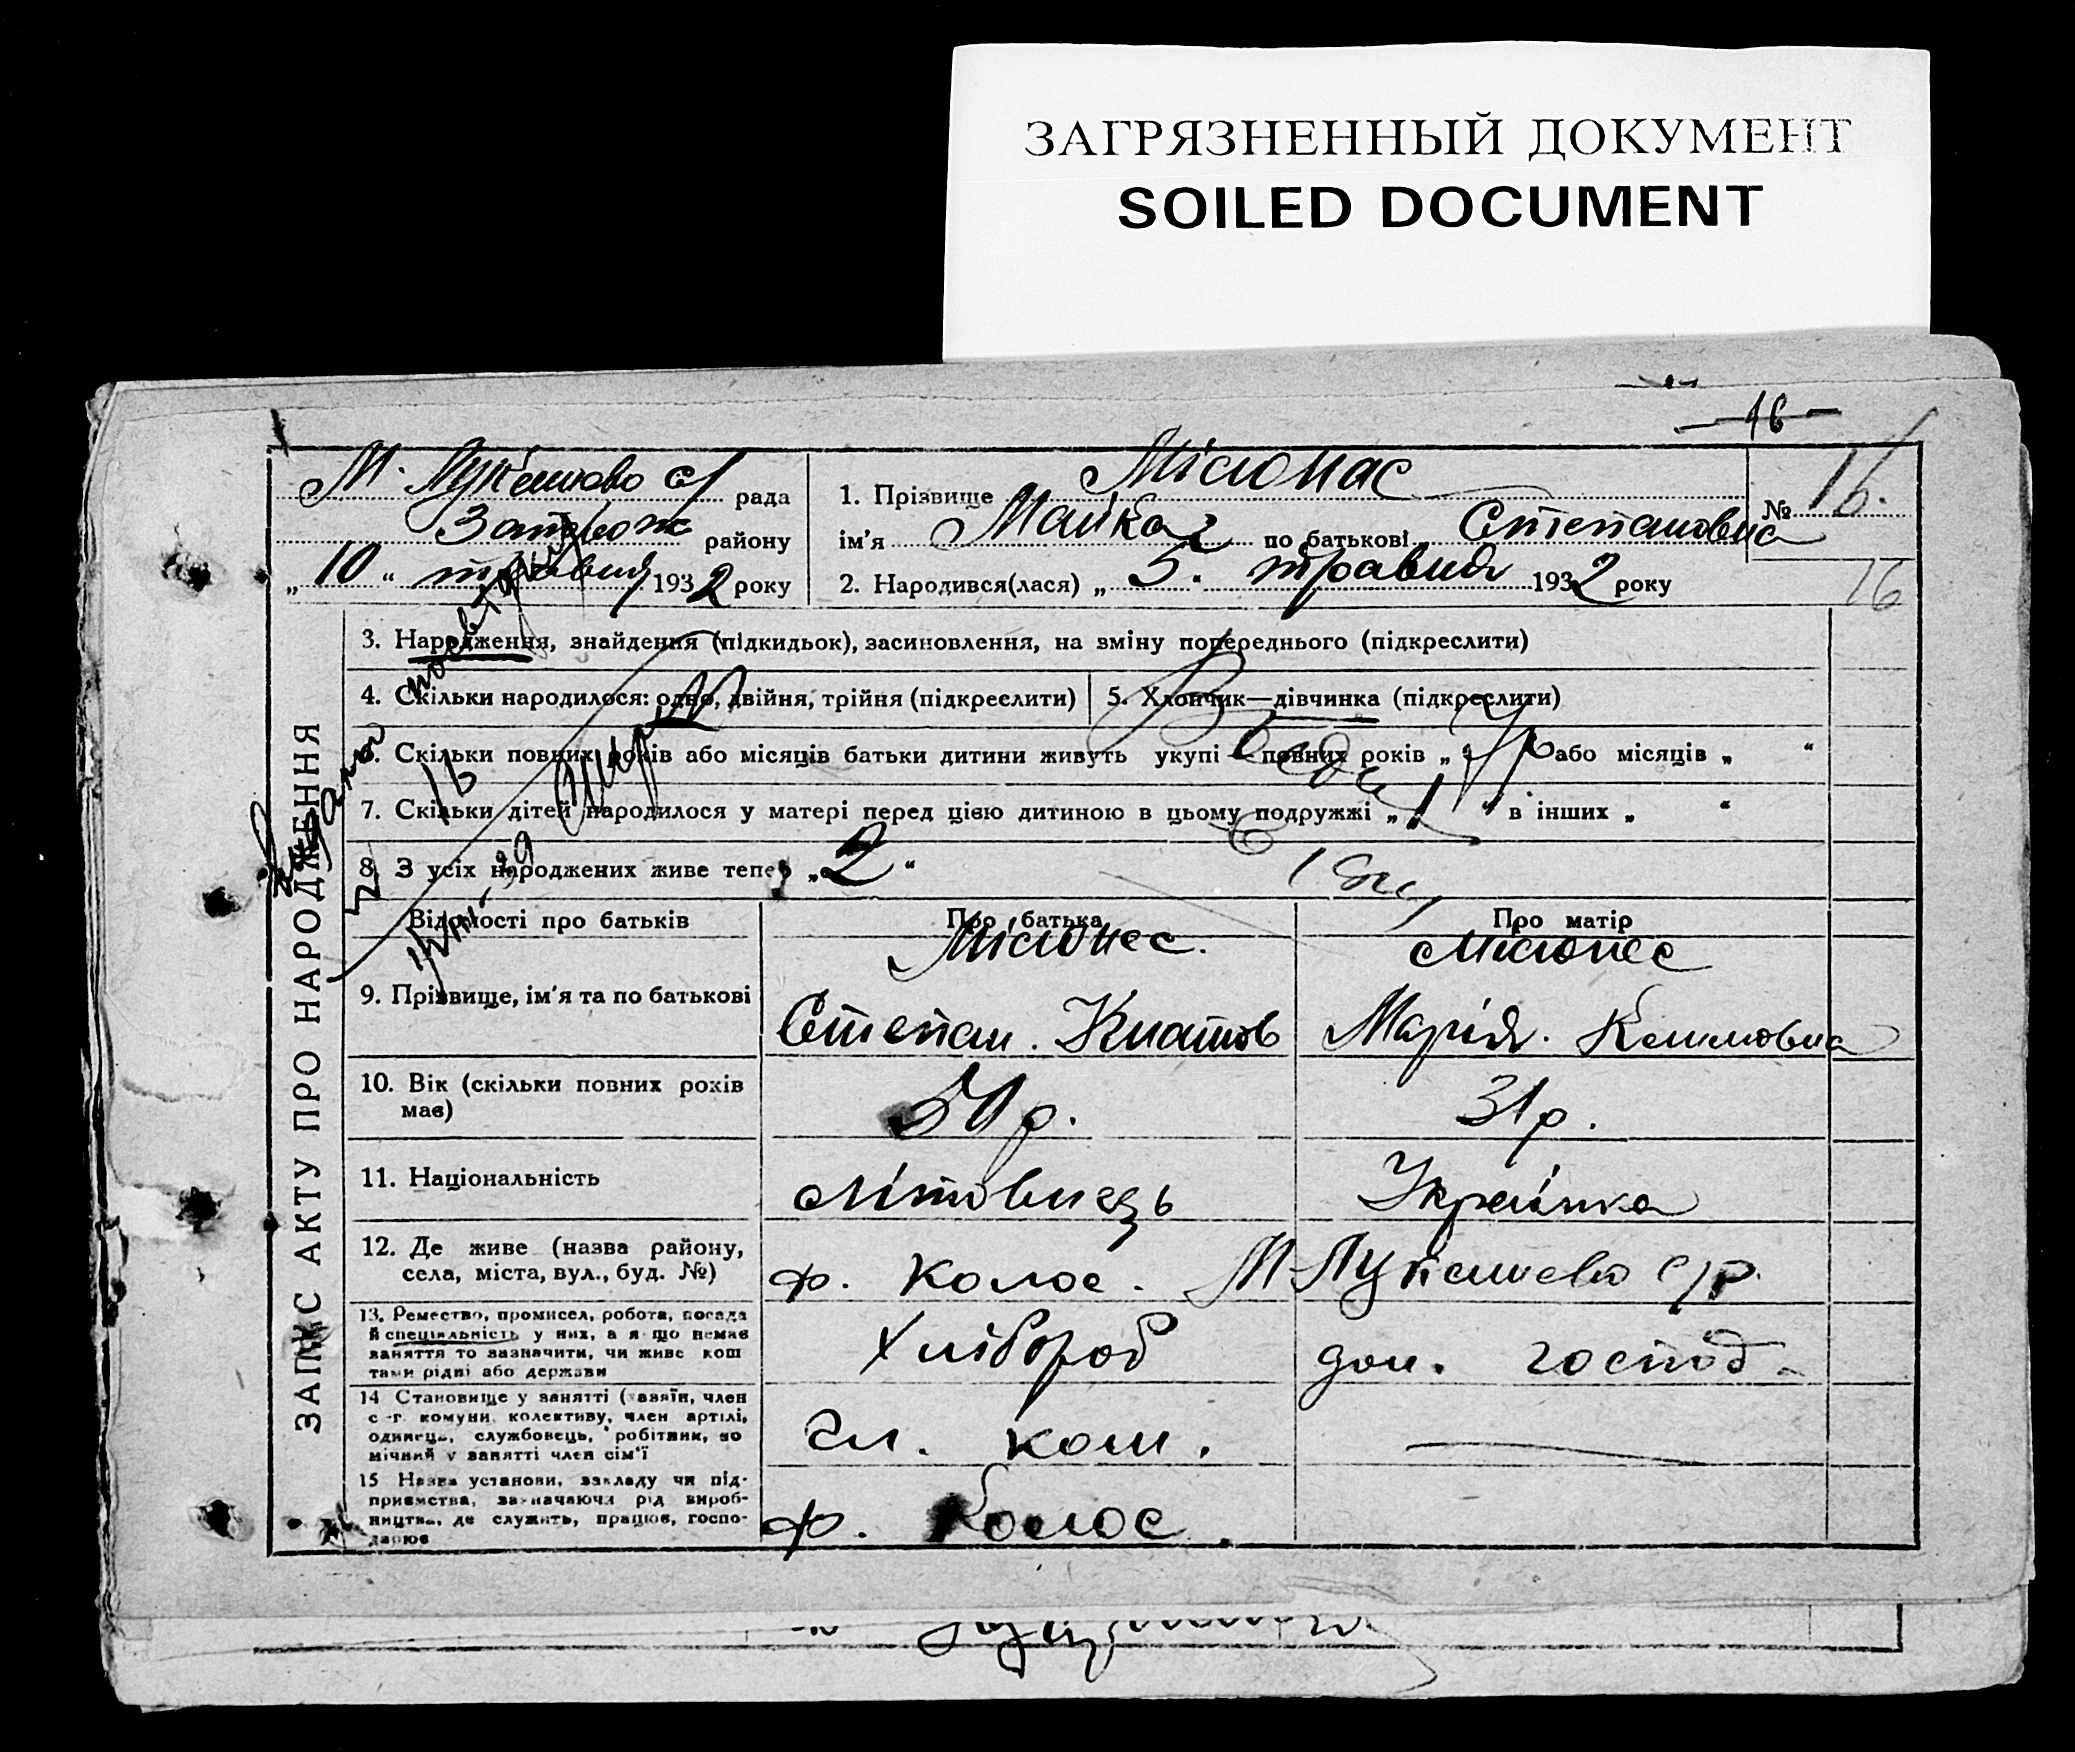 ЗАГРЯЗНЕННЫЙ ДОКУМЕНТ
SOILED DOCUMENT
— 16 —
М. Лукашово с/ рада
району
„ 10 “ травня 1932 року
1. Прізвище Місюнас
ім'я Майка по батькові Степановна
2. Народився(лася) „ 5. травня 1932 року
№ 16.
16
ЗАПИС АКТУ ПРО НАРОДЖЕННЯ
3. Народження, знайдення (підкидьок), засиновлення, на зміну попереднього (підкреслити)
4. Скільки народилося: одно, двійня, трійня (підкреслити)
5. Хлопчик—дівчинка (підкреслити)
6. Скільки повних років або місяців батьки дитини живуть укупі повних років „ або місяців „ “
7. Скільки дітей народилося у матері перед цією дитиною в цьому подружжі „ 1 “ в інших „ “
8. З усіх народжених живе тепер „ 2 “
Відомості про батьків
Про батька
Про матір
9. Прізвище, ім'я та по батькові
Місюнес.
Степан.
Місюнес
Марія.
10. Вік (скільки повних років
має)
50 р.
31 р.
11. Національність
Літовнець
Українка
12. Де живе (назва району,
села, міста, вул., буд. №)
ф. Колос. М-Лукашево с/р.
13. Ремество, промисел, робота, посада
й спеціяльність у них, а я що немає
заняття то зазначити, чи живе кош
тами рідні або держави
Хлібороб
дом. господ.
14 Становище у занятті (хазяїн, член
с.-г. комуни, колективу, член артілі,
одинець, службовець, робітник, по
мічний у занятті член сім'ї
Чл. ком.
15 Назва установи, закладу чи під-
приємства, зазначаючи рід вироб-
ництва, де служить, працює, госпо-
дарює
ф. Колос.